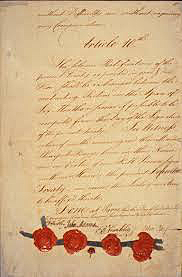 without Difficulty and without requiring
any Compensation.
Article 10th.
The solemn Ratifications of the
present Treaty expedited in good & due
Form shall be exchanged between the
contracting Parties in the Space of
Six Months or sooner if possible to be
computed from the Day of the Signature
of the present Treaty. In Witness
whereof we the undersigned their Ministers
Plenipotentiary have in their Name
and in Virtue of our Full Powers signed
with our Hands the present Definitive
Treaty, and caused the Seals of our Arms
to be affix'd thereto.
Done at Paris
John Adams
B Franklin
John Jay